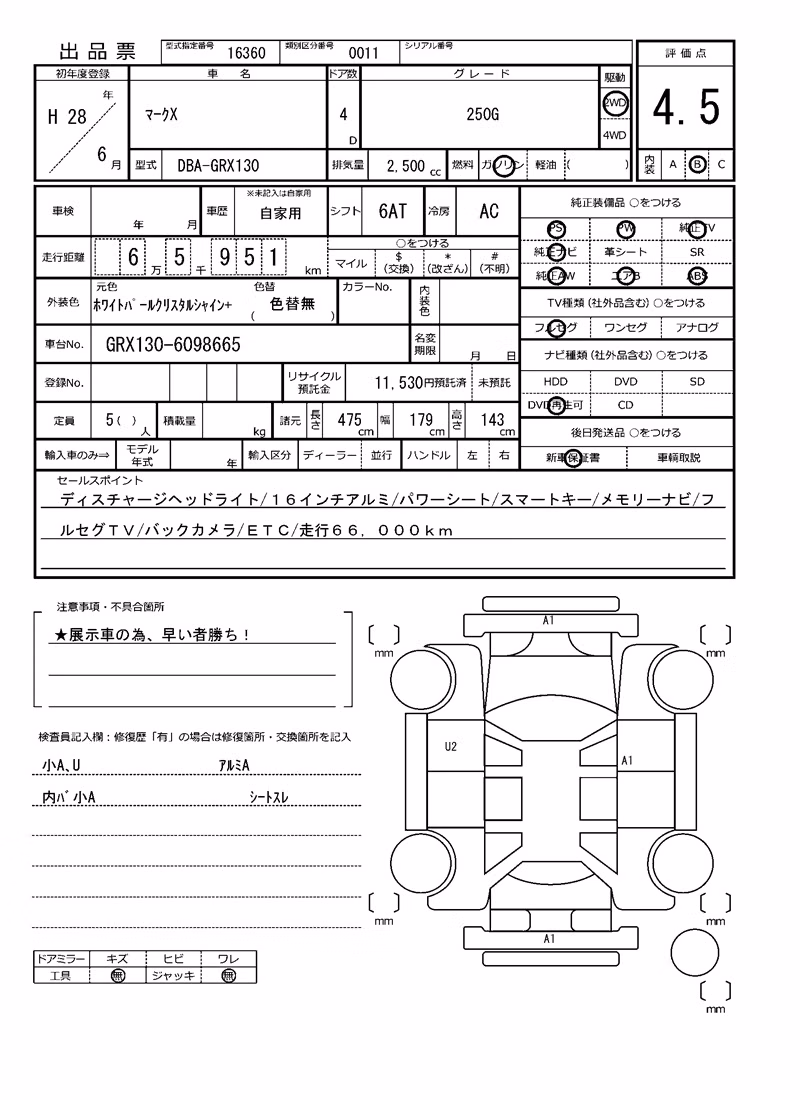 出品票 型式指定番号 16360 類別区分番号 0011 シリアル番号
評価点
4.5
内装 A B C
初年度登録 車名 ドア数 グレード 駆動
H 28 年 6 月 マークX 4 D 250G 2WD 4WD
型式 DBA-GRX130 排気量 2,500 cc 燃料 ガソリン 軽油 ( )
車検 年 月 車歴 ※未記入は自家用 自家用 シフト 6AT 冷房 AC
走行距離 6 万 5 千 9 5 1 km ○をつける
マイル $(交換) *(改ざん) #(不明)
外装色 元色 ホワイトパールクリスタルシャイン+ 色替 ( 色替無 ) カラーNo. 内装色
車台No. GRX130-6098665 名変期限 月 日
登録No. リサイクル預託金 11,530円預託済 未預託
定員 5( ) 人 積載量 kg 諸元 長さ 475 cm 幅 179 cm 高さ 143 cm
輸入車のみ⇒ モデル年式 年 輸入区分 ディーラー 並行 ハンドル 左 右
純正装備品 ○をつける
PS PW 純正TV
純正ナビ 革シート SR
純正AW エアB ABS
TV種類(社外品含む)○をつける
フルセグ ワンセグ アナログ
ナビ種類(社外品含む)○をつける
HDD DVD SD
DVD再生可 CD
後日発送品 ○をつける
新車保証書 車輌取説
セールスポイント
ディスチャージヘッドライト/16インチアルミ/パワーシート/スマートキー/メモリーナビ/フ
ルセグTV/バックカメラ/ETC/走行66,000km
注意事項・不具合箇所
★展示車の為、早い者勝ち!
検査員記入欄:修復歴「有」の場合は修復箇所・交換箇所を記入
小A、U アルミA
内バ小A シートスレ
ドアミラー キズ ヒビ ワレ
工具 無 ジャッキ 無
A1
mm mm
U2
A1
mm mm
A1
mm